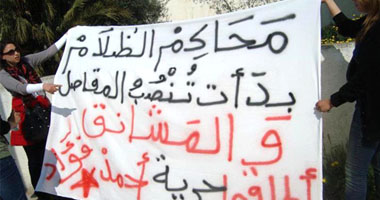 محاكم الظلام
بدأت تنصب المقاصل
و المشانق
أطلقوا حرية أحمد فؤاد